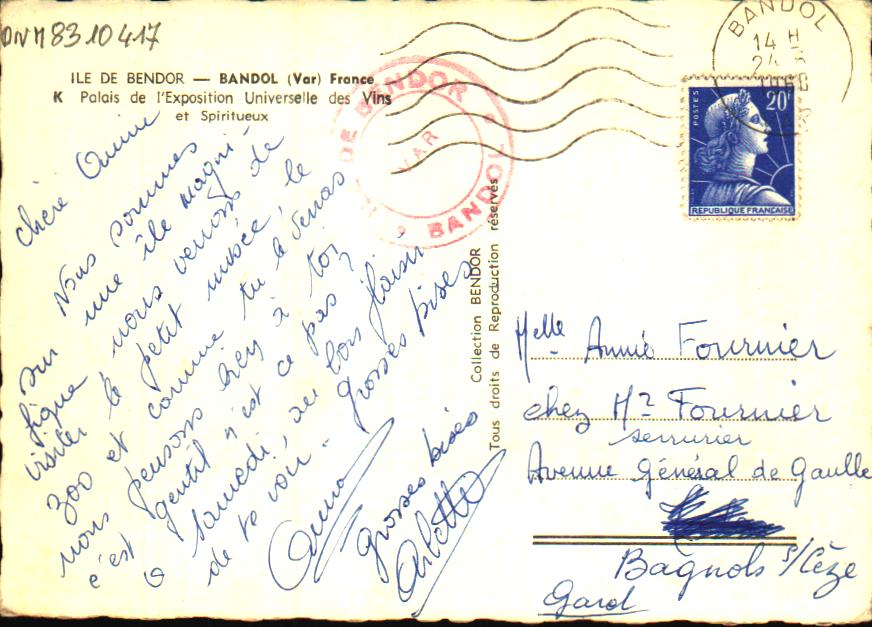 DNM8310417
ILE DE BENDOR — BANDOL (Var) France
K Palais de l'Exposition Universelle des Vins
et Spiritueux
chère Annie
Nous sommes
sur une île magni-
fique nous venons de
visiter le petit musée, le
zoo et comme tu le penses
nous pensons bien à toi
c'est gentil n'est ce pas ?
a samedi, au bon plaisir
de te voir. Grosses bises
Anna
grosses bises
Arlette
ILE DE BENDOR
VAR
BANDOL
Collection BENDOR
Tous droits de Reproduction réservés
BANDOL
14 H
24
POSTES
20F
REPUBLIQUE FRANÇAISE
Melle Annie Fournier
chez Mr Fournier
serrurier
Avenue Général de Gaulle
Bagnols s/Cèze
Gard